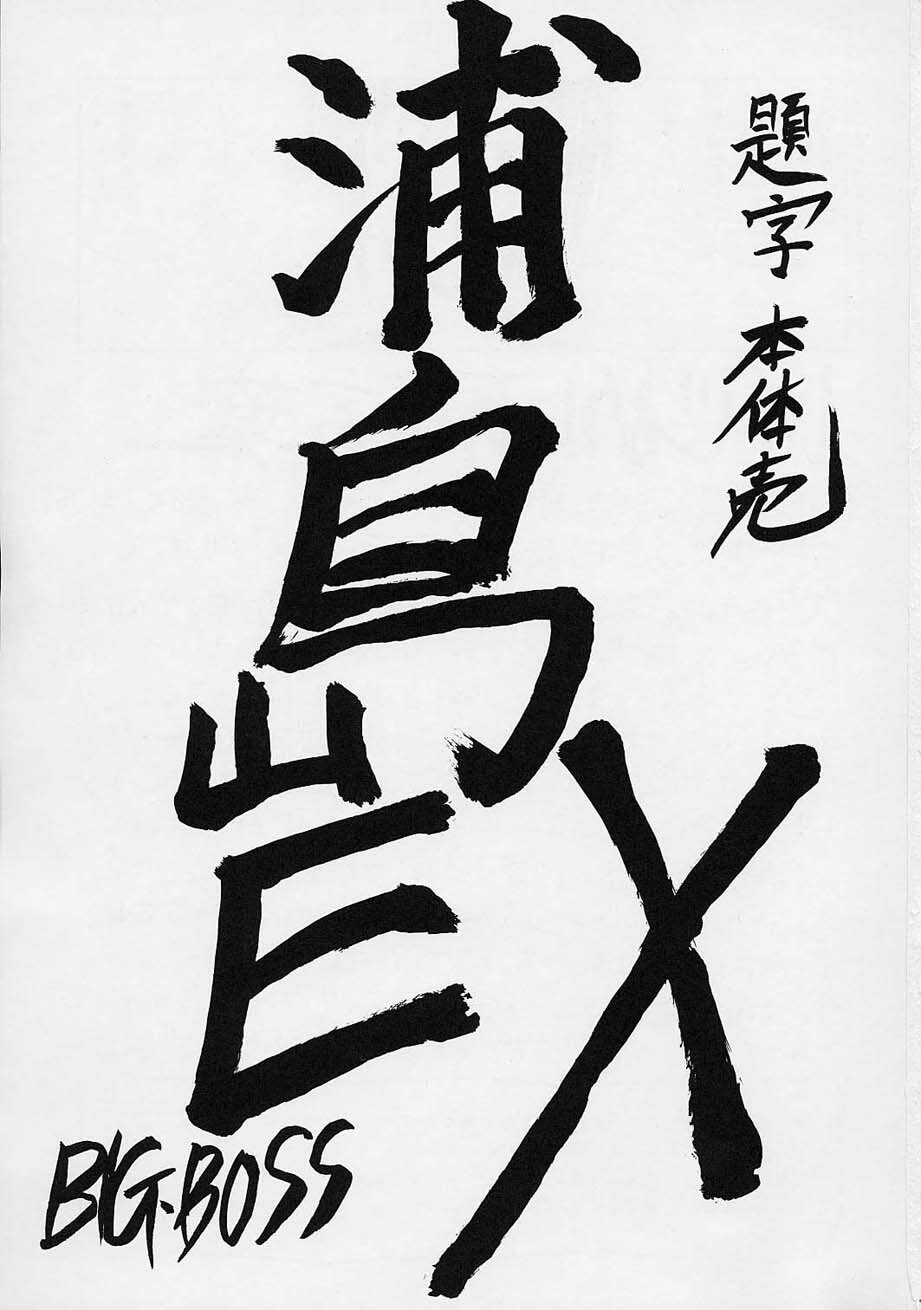 題字 本体売
浦島EX
BIG-BOSS